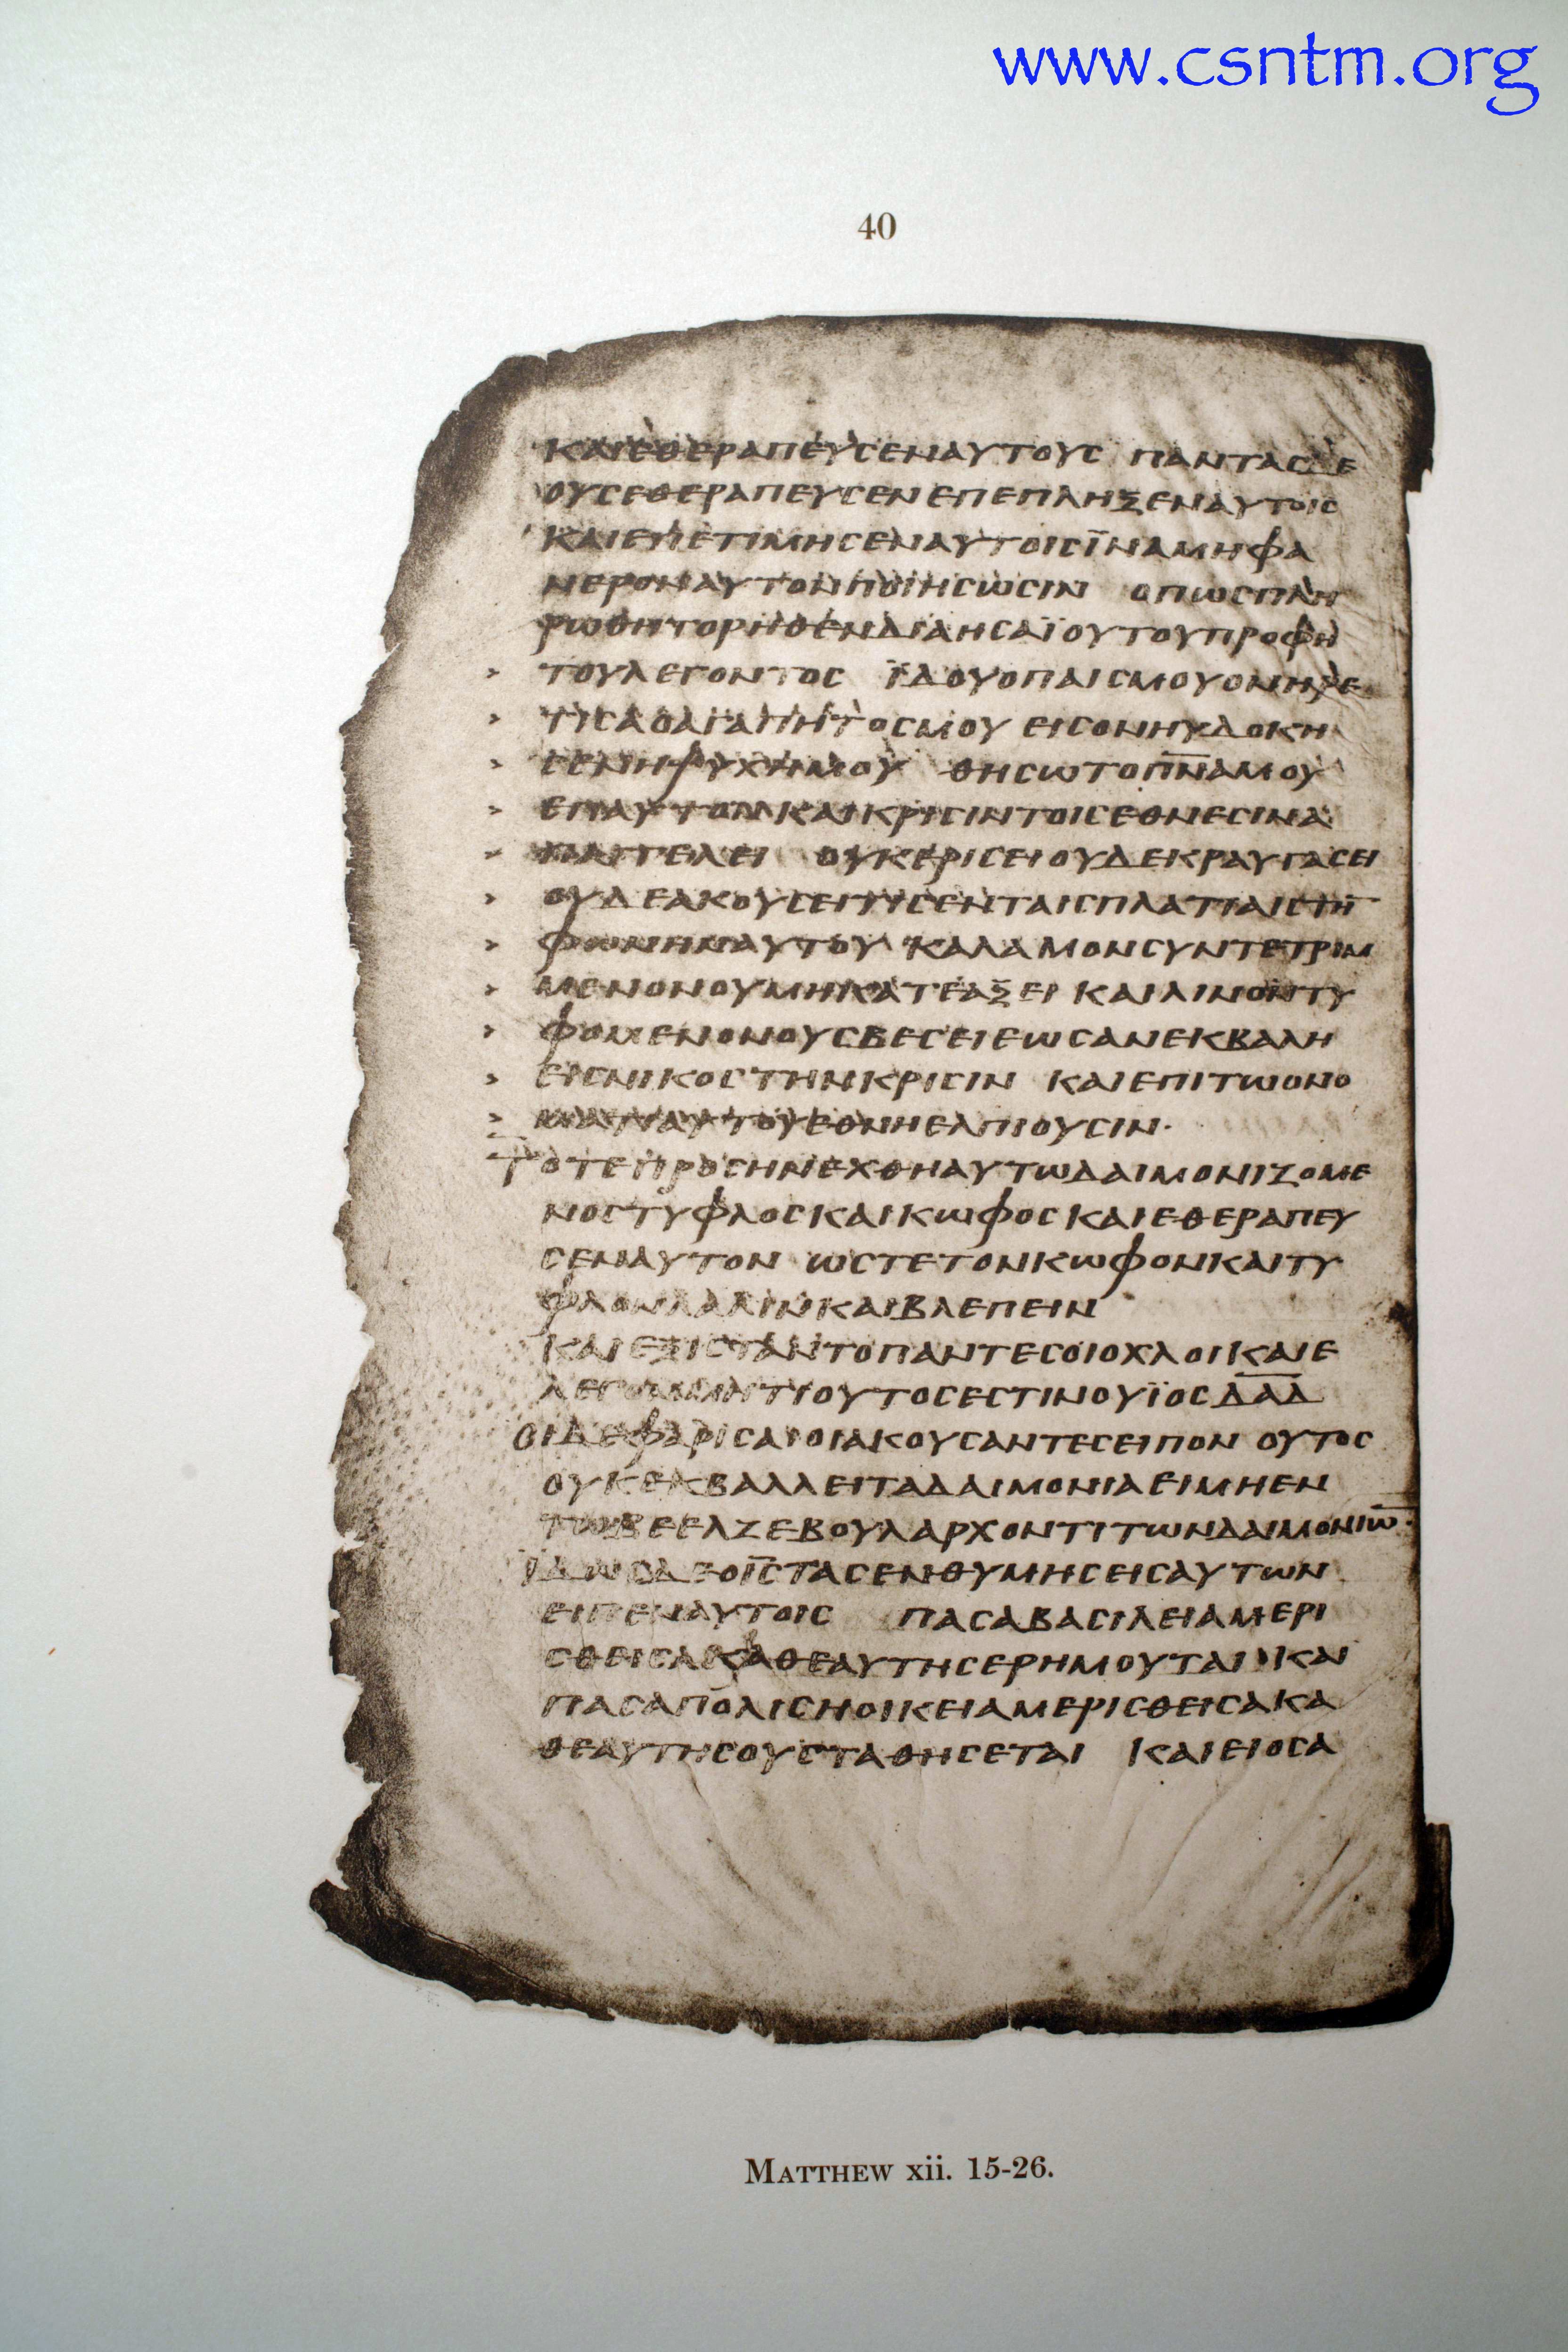 www.csntm.org
40
ΚΑΙΕΘΕΡΑΠΕΥϹΕΝΑΥΤΟΥϹ ΠΑΝΤΑϹΔΕ
ΟΥϹΕΘΕΡΑΠΕΥϹΕΝΕΠΕΠΛΗΞΕΝΑΥΤΟΙϹ
ΚΑΙΕΠΕΤΙΜΗϹΕΝΑΥΤΟΙϹΪΝΑΜΗΦΑ
ΝΕΡΟΝΑΥΤΟΝΠΟΙΗϹΩϹΙΝ ΟΠΩϹΠΛΗ
ΡΩΘΗΤΟΡΗΘΕΝΔΙΑΗϹΑΪΟΥΤΟΥΠΡΟΦΗ
> ΤΟΥΛΕΓΟΝΤΟϹ ΪΔΟΥΟΠΑΙϹΜΟΥΟΝΗΡΕ
> ΤΙϹΑΟΑΓΑΠΗΤΟϹΜΟΥ ΕΙϹΟΝΗΥΔΟΚΗ
> ϹΕΝΗΨΥΧΗΜΟΥ ΘΗϹΩΤΟΠ̅Ν̅ΑΜΟΥ
> ΕΠΑΥΤΟΝΚΑΙΚΡΙϹΙΝΤΟΙϹΕΘΝΕϹΙΝΑ
> ΠΑΓΓΕΛΕΙ ΟΥΚΕΡΙϹΕΙΟΥΔΕΚΡΑΥΓΑϹΕΙ
> ΟΥΔΕΑΚΟΥϹΕΙΤΙϹΕΝΤΑΙϹΠΛΑΤΙΑΙϹΤΗ̅
> ΦΩΝΗΝΑΥΤΟΥ ΚΑΛΑΜΟΝϹΥΝΤΕΤΡΙΜ
> ΜΕΝΟΝΟΥΜΗΚΑΤΕΑΞΕΙ ΚΑΙΛΙΝΟΝΤΥ
> ΦΟΜΕΝΟΝΟΥϹΒΕϹΕΙΕΩϹΑΝΕΚΒΑΛΗ
> ΕΙϹΝΙΚΟϹΤΗΝΚΡΙϹΙΝ ΚΑΙΕΠΙΤΩΟΝΟ
> ΜΑΤΙΑΥΤΟΥΕΘΝΗΕΛΠΙΟΥϹΙΝ·
ΤΟΤΕΠΡΟϹΗΝΕΧΘΗΑΥΤΩΔΑΙΜΟΝΙΖΟΜΕ
ΝΟϹΤΥΦΛΟϹΚΑΙΚΩΦΟϹΚΑΙΕΘΕΡΑΠΕΥ
ϹΕΝΑΥΤΟΝ ΩϹΤΕΤΟΝΚΩΦΟΝΚΑΙΤΥ
ΦΛΟΝΛΑΛΙΝΚΑΙΒΛΕΠΕΙΝ
ΚΑΙΕΞΙϹΤΑΝΤΟΠΑΝΤΕϹΟΙΟΧΛΟΙΚΑΙΕ
ΛΕΓΟΝΜΗΤΙΟΥΤΟϹΕϹΤΙΝΟΥΪΟϹΔ̅Α̅Δ̅
ΟΙΔΕΦΑΡΙϹΑΙΟΙΑΚΟΥϹΑΝΤΕϹΕΙΠΟΝ ΟΥΤΟϹ
ΟΥΚΕΚΒΑΛΛΕΙΤΑΔΑΙΜΟΝΙΑΕΙΜΗΕΝ
ΤΩΒΕΕΛΖΕΒΟΥΛΑΡΧΟΝΤΙΤΩΝΔΑΙΜΟΝΙΩ̅·
ΪΔΩϹΔΕΟΙ̅Ϲ̅ΤΑϹΕΝΘΥΜΗϹΕΙϹΑΥΤΩΝ
ΕΙΠΕΝΑΥΤΟΙϹ ΠΑϹΑΒΑϹΙΛΕΙΑΜΕΡΙ
ϹΘΕΙϹΑΚΑΘΕΑΥΤΗϹΕΡΗΜΟΥΤΑΙ ΚΑΙ
ΠΑϹΑΠΟΛΙϹΗΟΙΚΕΙΑΜΕΡΙϹΘΕΙϹΑΚΑ
ΘΕΑΥΤΗϹΟΥϹΤΑΘΗϹΕΤΑΙ ΚΑΙΕΙΟϹΑ
MATTHEW xii. 15-26.